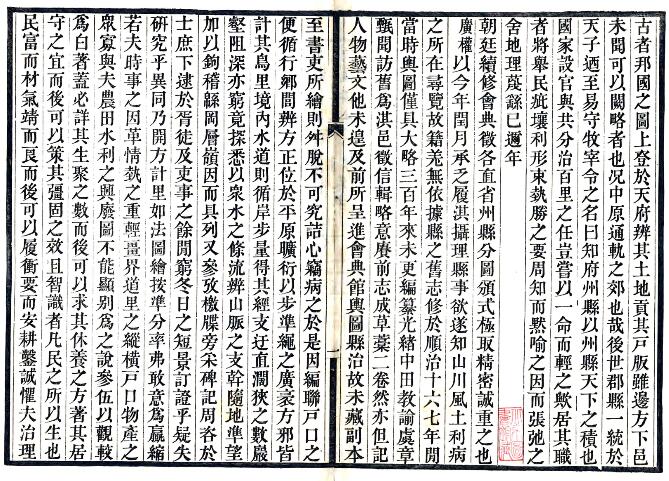 古者邦國之圖上登於天府辨其土地貢其戸版雖邊方下邑
未聞可以闕略者也况中原通軌之郊也哉後世郡縣一統於
天子廼至易守牧宰令之名曰知府州縣以州縣天下之積也
國家設官與共分治百里之任豈嘗以一命而輕之歟居其職
者將舉民疵壤利形東埶勝之要周知而黙喻之因而張弛之
舍地理蔑繇巳邇年
朝廷續修會典徵各直省州縣分圖頒式極取精密誠重之也
廣權以今年閏月承之履淇攝理縣事欲遂知山川風土利病
之所在尋覽故籍羌無依據縣之舊志修於順治十六七年閒
當時輿圖僅具大略三百年來未更編纂光緖中田教諭虞章
甄聞訪舊為淇邑徵信輯略意賡前志成草藁二卷然亦但記
人物藝文他未遑及前所呈進會典館輿圖縣治故未藏副本
至書吏所繪則舛脫不可究詰心竊病之於是因編聯戸口之
便循行鄉閭辨方正位於平原曠衍以步準繩之廣袤方邪皆
計其鳥里境內水道則循岸步量得其經支迂直濶狹之數巖
壑阻深亦窮竟探悉以衆水之條流辨山脈之支幹隨地準望
加以鉤稽緜岡層嶺因而具列又參攷檄牒旁采碑記周咨於
士庶下逮於胥徒及吏事之餘閒窮冬日之短景訂證乎疑失
研究乎異同乃開方計里如法圖繪按準分率弗敢意為贏縮
若夫時事之因革情埶之重輕畺界道里之縱橫戸口物產之
衆寡與夫農田水利之興廢圖不能顯别為之說參伍以觀較
為白著蓋必詳其生聚之數而後可以求其休養之方著其居
守之宜而後可以策其彊固之效且智識者凡民之所以生也
民富而材氣靖而良而後可以履衝要而安耕鑿誠懼夫治理